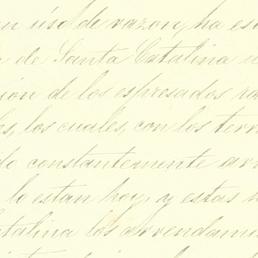 en uso de razon, ha es
de Santa Catalina u
ion de los espresados ra
los cuales, con los terr
do constantemente arr
lo estan hoy, y estas
Catalina los arrendam